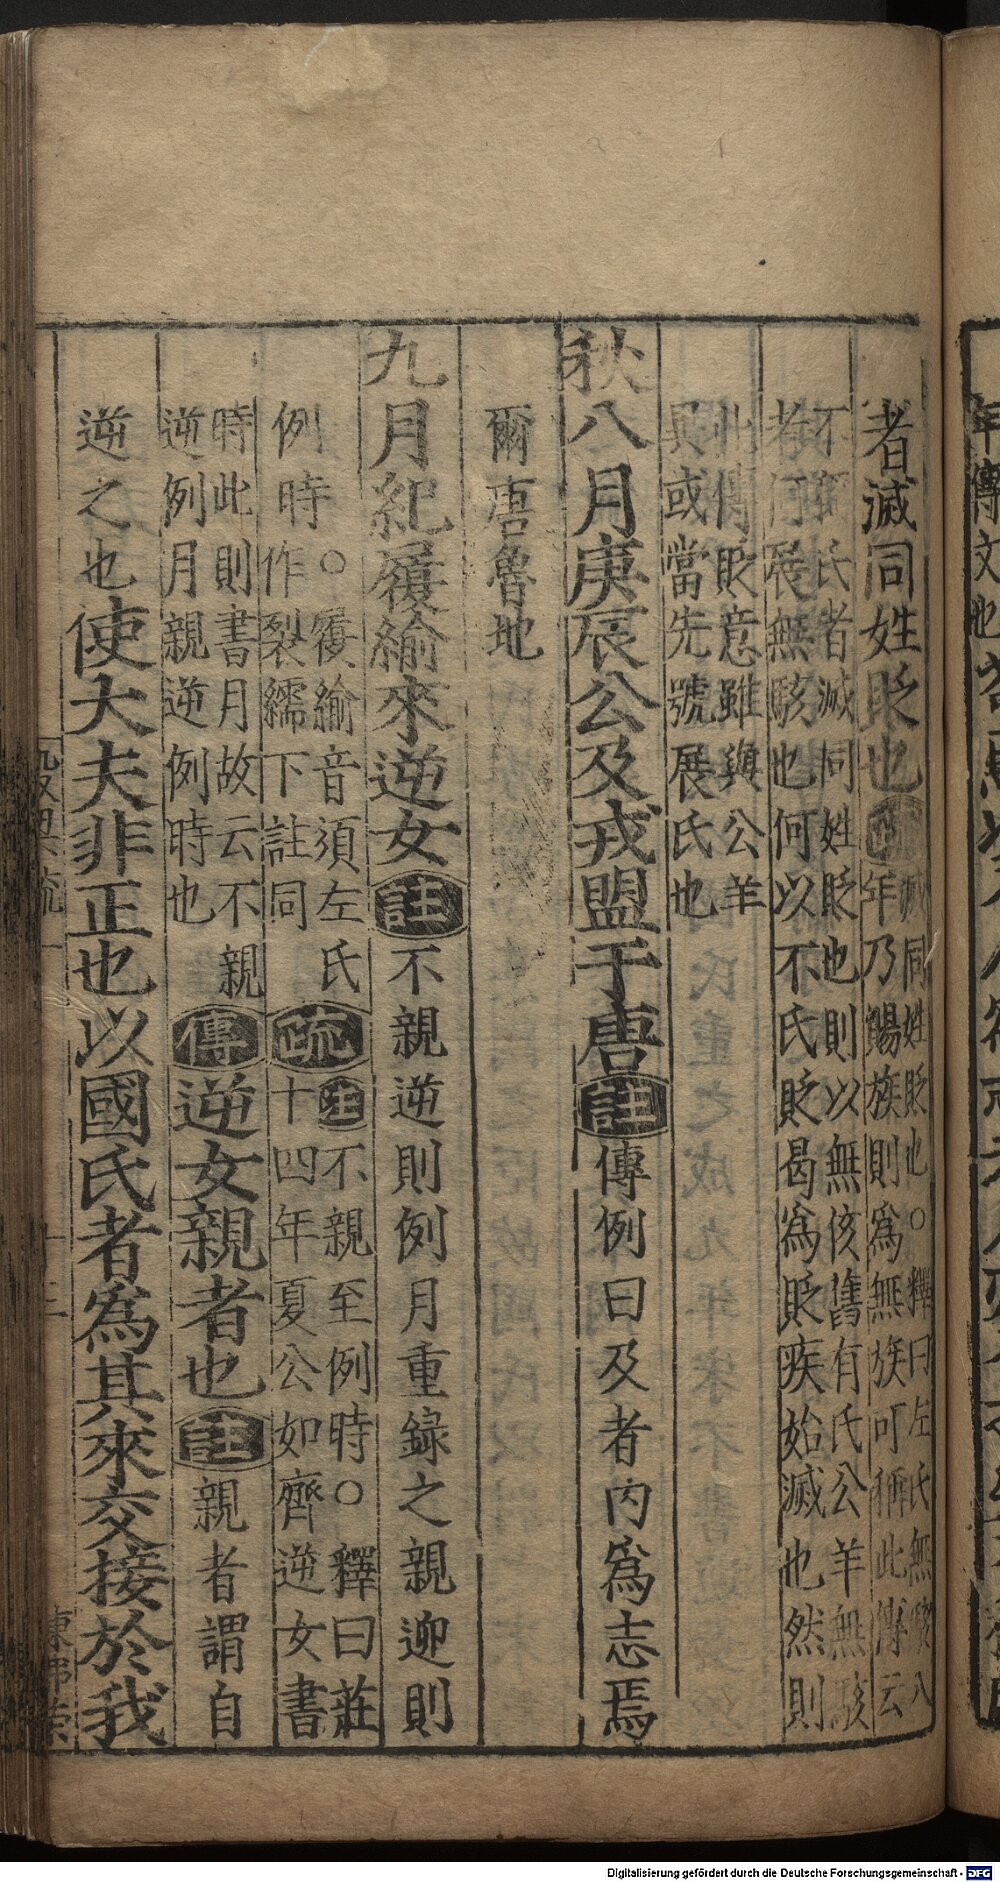 者滅同姓貶也疏滅同姓貶也○釋曰左氏無駭八
年乃賜族則為無族可稱此傳云
不氏者滅同姓貶也則以無侅舊有氏公羊無駭
者何展無駭也何以不氏貶曷為貶疾始滅也然則
此傳貶意雖與公羊
異或當先號展氏也
秋八月庚辰公及戎盟于唐註傳例曰及者內為志焉
爾唐魯地
九月紀履緰來逆女註不親逆則例月重録之親迎則
例時○履緰音須左氏
作裂繻下註同
疏註不親至例時○釋曰莊
十四年夏公如齊逆女書
時此則書月故云不親
逆例月親逆例時也
傳逆女親者也註親者謂自
逆之也使大夫非正也以國氏者為其來交接於我
Digitalisierung gefördert durch die Deutsche Forschungsgemeinschaft - DFG